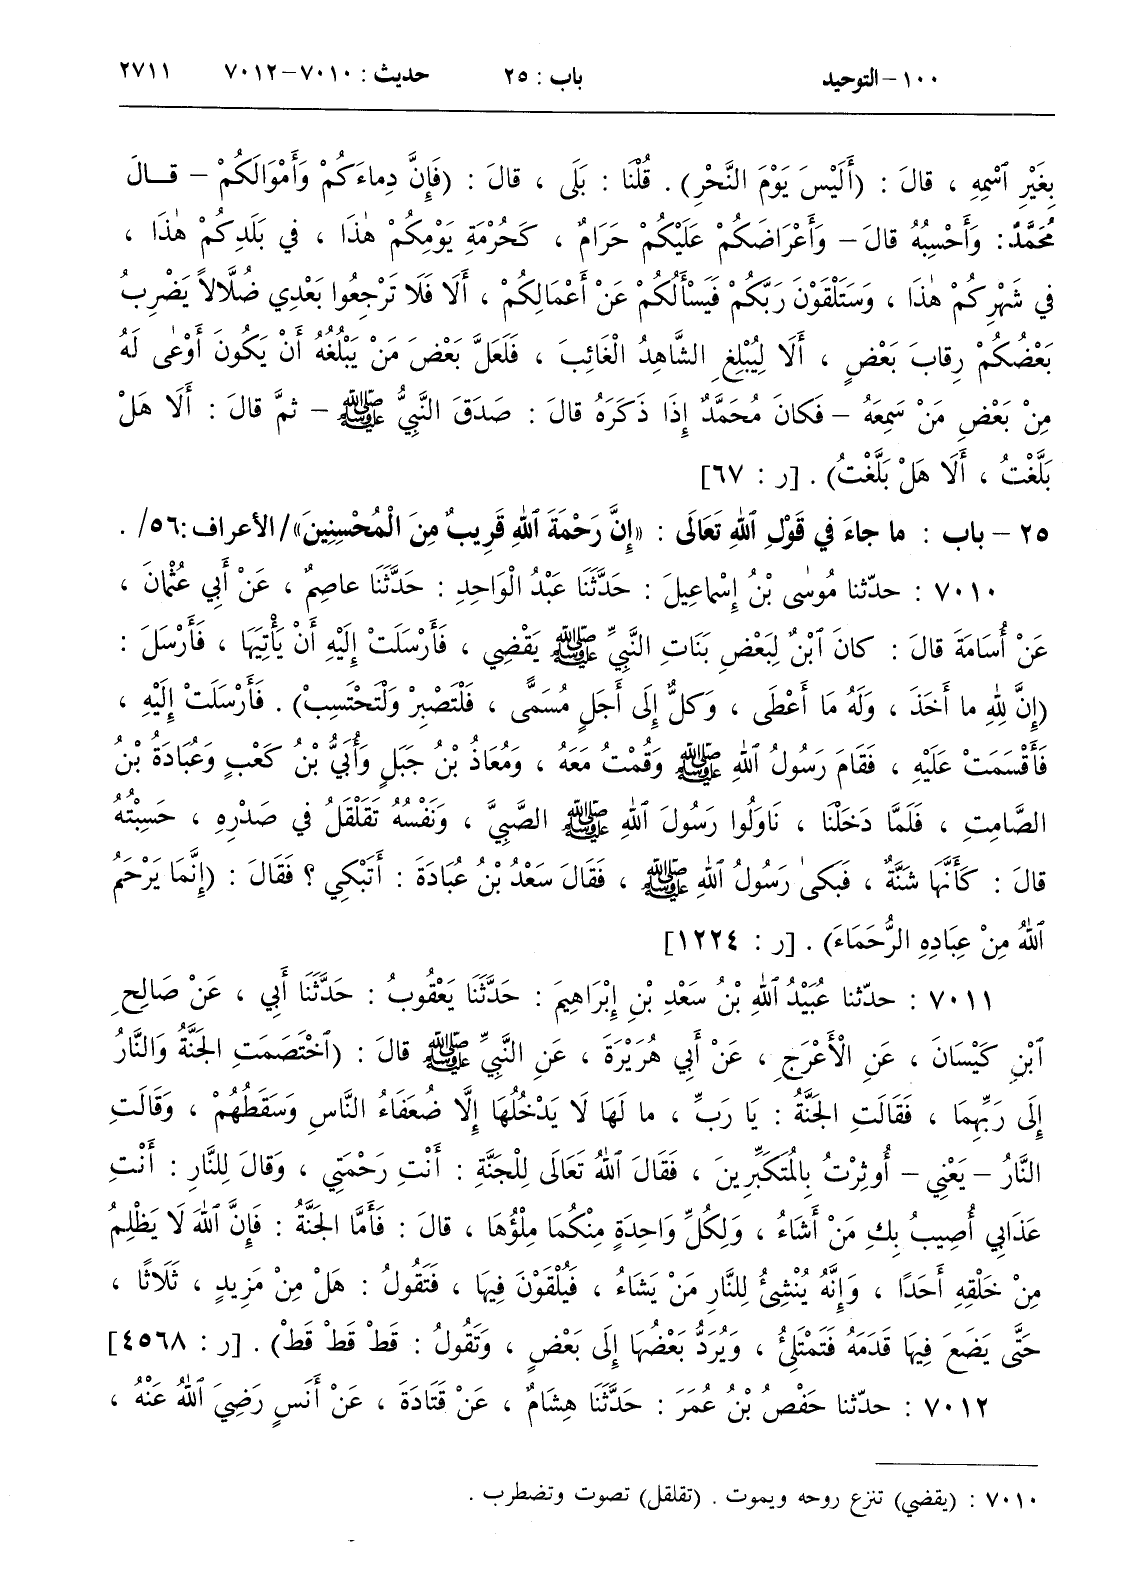 ١٠٠ – التوحيد باب : ٢٥ حديث : ٧٠١٠–٧٠١٢ ٢٧١١
بِغَيْرِ ٱسْمِهِ ، قالَ : (أَلَيْسَ يَوْمَ النَّحْرِ) . قُلْنَا : بَلَى ، قالَ : (فَإِنَّ دِماءَكُمْ وَأَمْوَالَكُمْ – قــالَ
مُحَمَّدٌ : وَأَحْسِبُهُ قالَ – وَأَعْرَاضَكُمْ عَلَيْكُمْ حَرَامٌ ، كَحُرْمَةِ يَوْمِكُمْ هٰذَا ، في بَلَدِكُمْ هٰذَا ،
في شَهْرِكُمْ هٰذَا ، وَسَتَلْقَوْنَ رَبَّكُمْ فَيَسْأَلُكُمْ عَنْ أَعْمَالِكُمْ ، أَلَا فَلَا تَرْجِعُوا بَعْدِي ضُلَّالاً يَضْرِبُ
بَعْضُكُمْ رِقابَ بَعْضٍ ، أَلَا لِيُبْلِغِ الشَّاهِدُ الْغَائِبَ ، فَلَعَلَّ بَعْضَ مَنْ يَبْلُغُهُ أَنْ يَكُونَ أَوْعٰى لَهُ
مِنْ بَعْضِ مَنْ سَمِعَهُ – فَكانَ مُحَمَّدٌ إِذَا ذَكَرَهُ قالَ : صَدَقَ النَّبِيُّ ﷺ – ثمَّ قالَ : أَلَا هَلْ
بَلَّغْتُ ، أَلَا هَلْ بَلَّغْتُ) . [ر : ٦٧]
٢٥ – باب : ما جاءَ في قَوْلِ ٱللهِ تَعَالَى : «إِنَّ رَحْمَةَ ٱللهِ قَرِيبٌ مِنَ الْمُحْسِنِينَ»/الأعراف:٥٦/ .
٧٠١٠ : حدّثنا مُوسٰى بْنُ إِسْماعِيلَ : حَدَّثَنَا عَبْدُ الْوَاحِدِ : حَدَّثَنَا عاصِمٌ ، عَنْ أَبِي عُثْمانَ ،
عَنْ أُسَامَةَ قالَ : كانَ ٱبْنٌ لِبَعْضِ بَنَاتِ النَّبِيِّ ﷺ يَقْضِي ، فَأَرْسَلَتْ إِلَيْهِ أَنْ يَأْتِيَهَا ، فَأَرْسَلَ :
(إِنَّ لِلهِ ما أَخَذَ ، وَلَهُ مَا أَعْطَى ، وَكلٌّ إِلَى أَجَلٍ مُسَمًّى ، فَلْتَصْبِرْ وَلْتَحْتَسِبْ) . فَأَرْسَلَتْ إِلَيْهِ ،
فَأَقْسَمَتْ عَلَيْهِ ، فَقَامَ رَسُولُ ٱللهِ ﷺ وَقُمْتُ مَعَهُ ، وَمُعَاذُ بْنُ جَبَلٍ وَأُبَيُّ بْنُ كَعْبٍ وَعُبَادَةُ بْنُ
الصَّامِتِ ، فَلَمَّا دَخَلْنَا ، نَاوَلُوا رَسُولَ ٱللهِ ﷺ الصَّبِيَّ ، وَنَفْسُهُ تَقَلْقَلُ في صَدْرِهِ ، حَسِبْتُهُ
قالَ : كَأَنَّهَا شَنَّةٌ ، فَبَكىٰ رَسُولُ ٱللهِ ﷺ ، فَقَالَ سَعْدُ بْنُ عُبَادَةَ : أَتَبْكِي ؟ فَقَالَ : (إِنَّمَا يَرْحَمُ
ٱللهُ مِنْ عِبَادِهِ الرُّحَمَاءَ) . [ر : ١٢٢٤]
٧٠١١ : حدّثنا عُبَيْدُ ٱللهِ بْنُ سَعْدِ بْنِ إِبْرَاهِيمَ : حَدَّثَنَا يَعْقُوبُ : حَدَّثَنَا أَبِي ، عَنْ صَالِحِ
ٱبْنِ كَيْسَانَ ، عَنِ الْأَعْرَجِ ، عَنْ أَبِي هُرَيْرَةَ ، عَنِ النَّبِيِّ ﷺ قالَ : (ٱخْتَصَمَتِ الجَنَّةُ وَالنَّارُ
إِلَى رَبِّهِمَا ، فَقَالَتِ الجَنَّةُ : يَا رَبِّ ، ما لَهَا لَا يَدْخُلُهَا إِلَّا ضُعَفَاءُ النَّاسِ وَسَقَطُهُمْ ، وَقَالَتِ
النَّارُ – يَعْنِي – أُوثِرْتُ بِالْمُتَكَبِّرِينَ ، فَقَالَ ٱللهُ تَعَالَى لِلْجَنَّةِ : أَنْتِ رَحْمَتِي ، وَقالَ لِلنَّارِ : أَنْتِ
عَذَابِي أُصِيبُ بِكِ مَنْ أَشَاءُ ، وَلِكُلِّ وَاحِدَةٍ مِنْكُمَا مِلْؤُهَا ، قالَ : فَأَمَّا الجَنَّةُ : فَإِنَّ ٱللهَ لَا يَظْلِمُ
مِنْ خَلْقِهِ أَحَدًا ، وَإِنَّهُ يُنْشِئُ لِلنَّارِ مَنْ يَشَاءُ ، فَيُلْقَوْنَ فِيهَا ، فَتَقُولُ : هَلْ مِنْ مَزِيدٍ ، ثَلَاثًا ،
حَتَّى يَضَعَ فِيهَا قَدَمَهُ فَتَمْتَلِئُ ، وَيُرَدُّ بَعْضُهَا إِلَى بَعْضٍ ، وَتَقُولُ : قَطْ قَطْ قَطْ) . [ر : ٤٥٦٨]
٧٠١٢ : حدّثنا حَفْصُ بْنُ عُمَرَ : حَدَّثَنَا هِشَامٌ ، عَنْ قَتَادَةَ ، عَنْ أَنَسٍ رَضِيَ ٱللهُ عَنْهُ ،
٧٠١٠ : (يقضي) تنزع روحه ويموت . (تقلقل) تصوت وتضطرب .